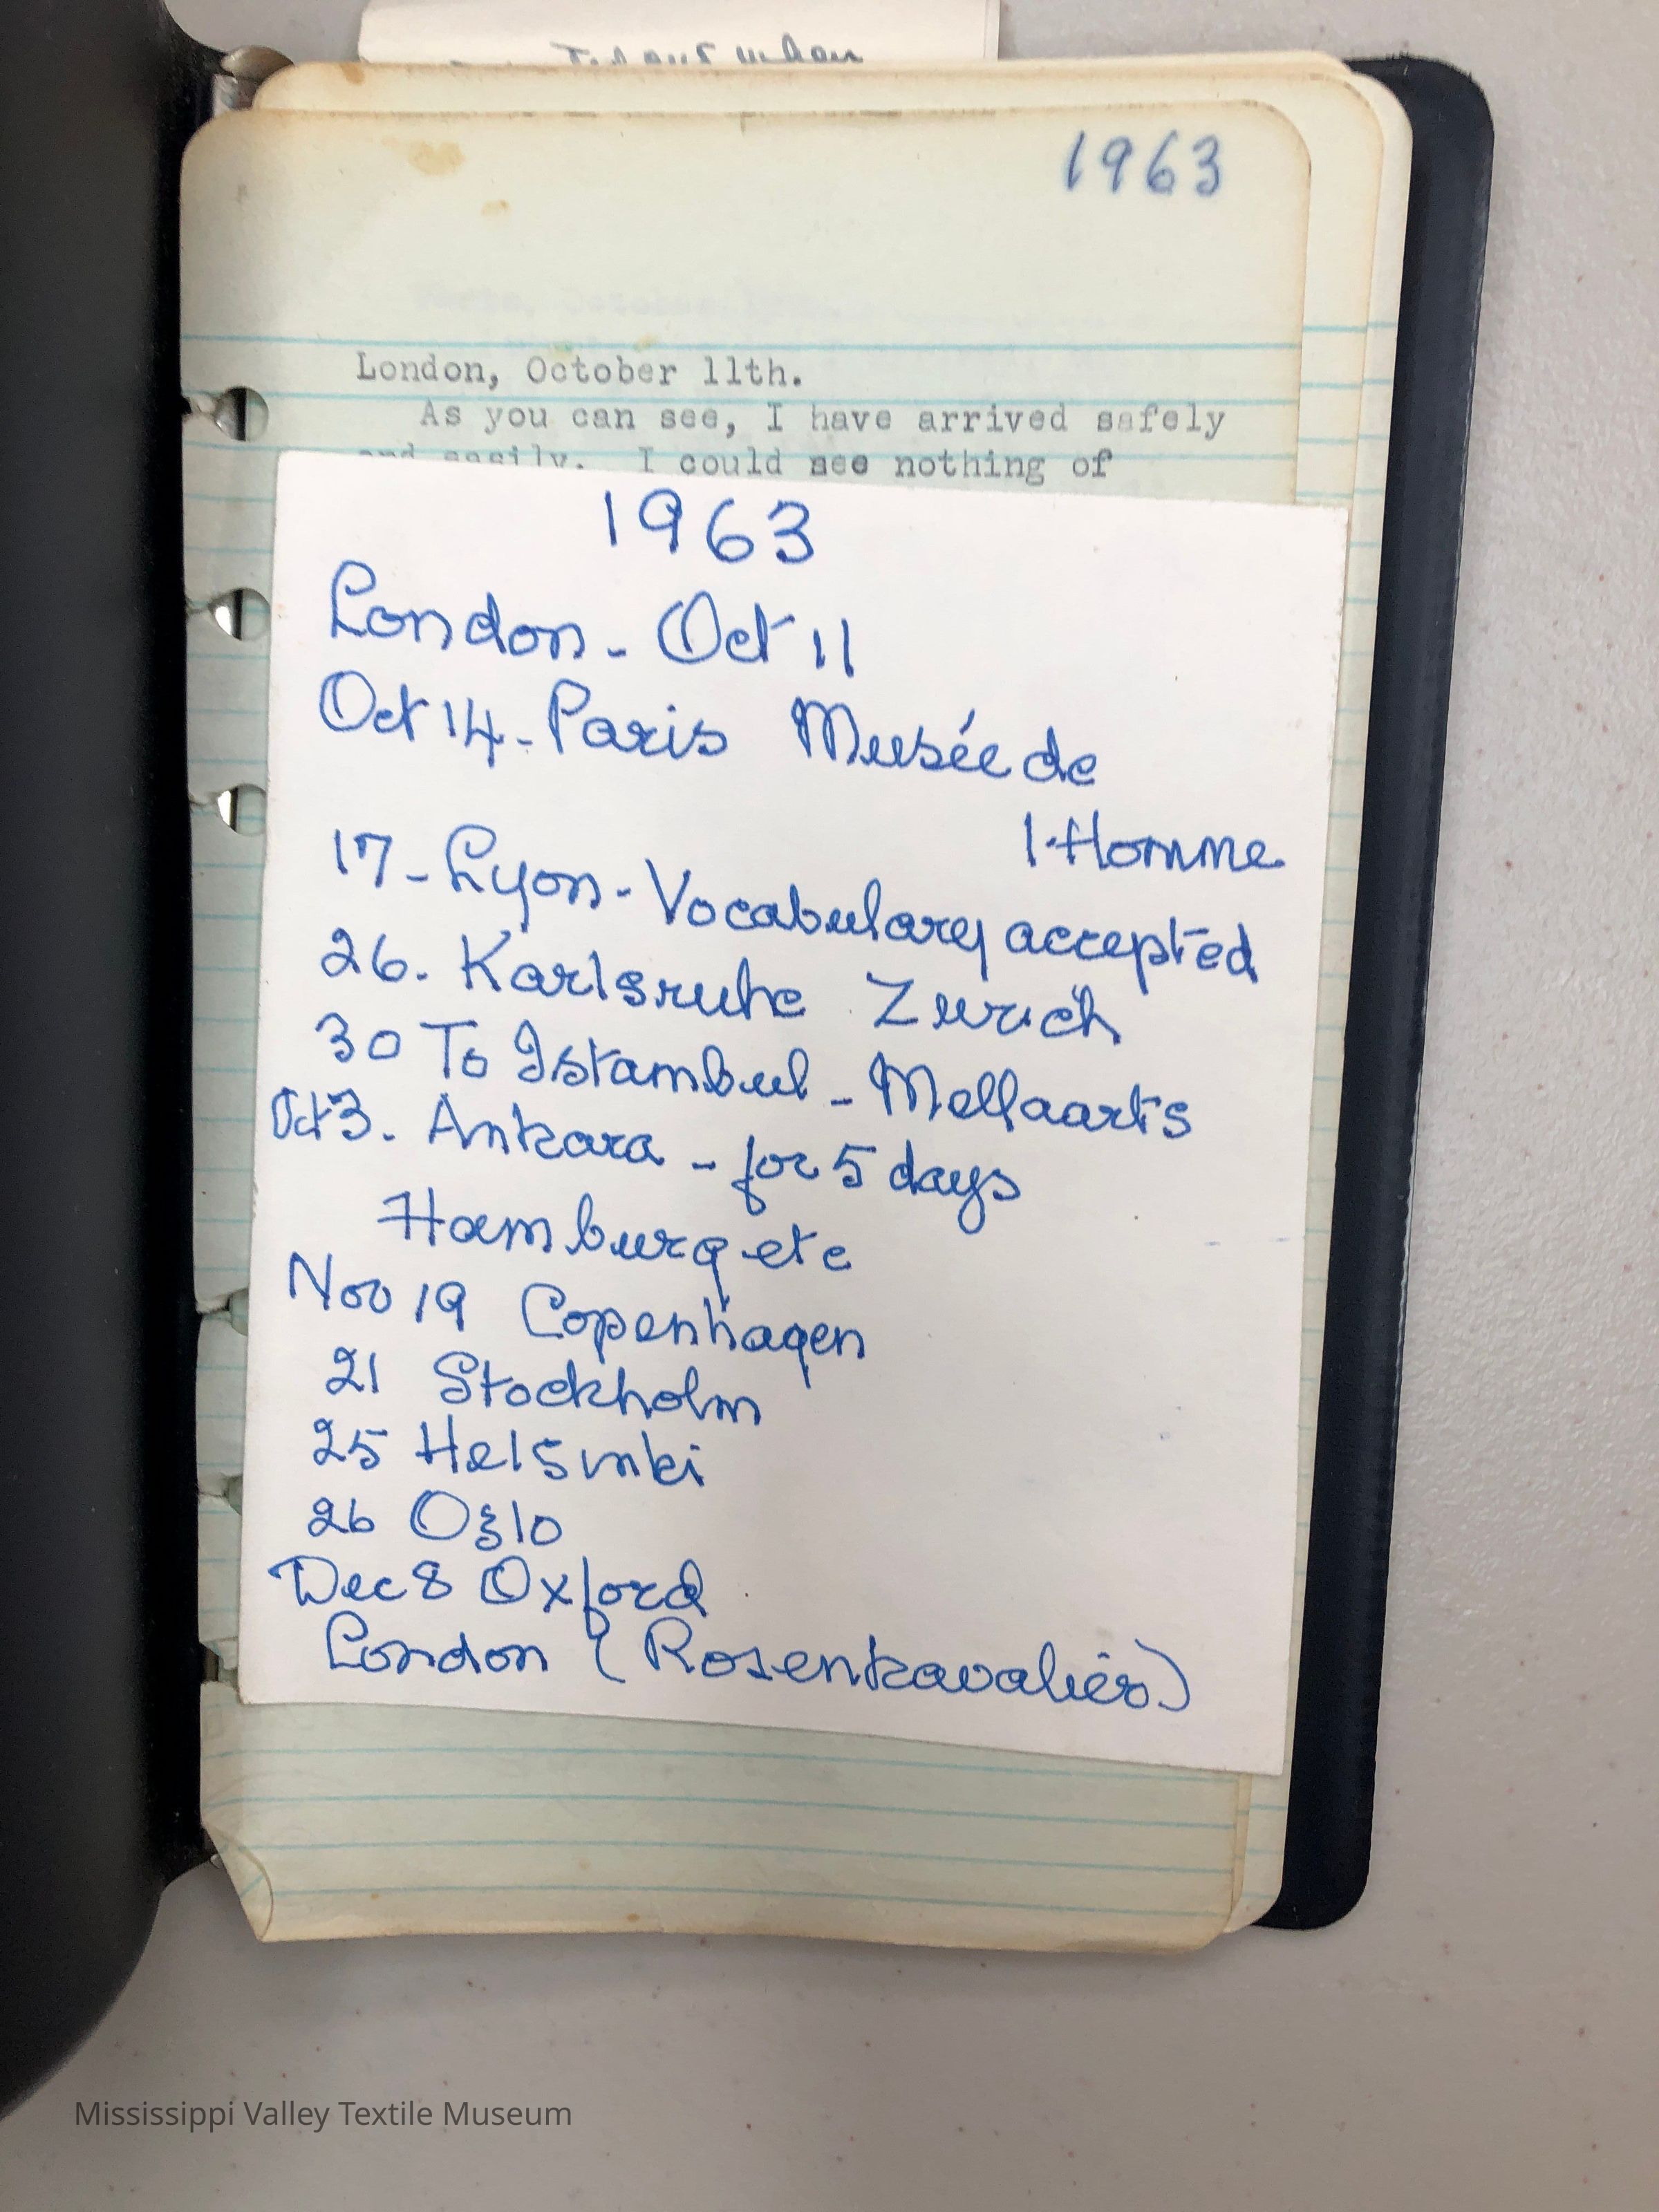 when
1963
London, October 11th.
As you can see, I have arrived safely
and easily. I could see nothing of
1963
London - Oct 11
Oct 14 - Paris Musée de
l'Homme
17 - Lyon - Vocabulary accepted
26. Karlsruhe Zurich
30 To Istambul - Mellaarts
Oct 3. Ankara - for 5 days
Hamburg etc
Nov 19 Copenhagen
21 Stockholm
25 Helsinki
26 Oslo
Dec 8 Oxford
London (Rosenkavalier)
Mississippi Valley Textile Museum